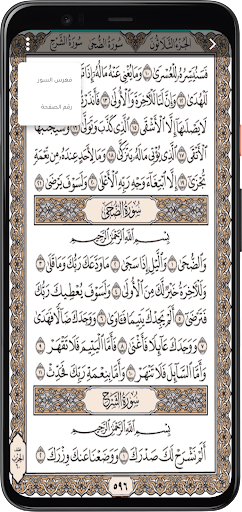 الجزء الثلاثون سورة الضحى سورة الشرح
فهرس السور
رقم الصفحة
فَسَنُيَسِّرُهُۥ لِلْعُسْرَىٰ ١٠ وَمَا يُغْنِى عَنْهُ مَالُهُۥٓ
لَلْهُدَىٰ ١٢ وَإِنَّ لَنَا لَلْءَاخِرَةَ وَٱلْأُولَىٰ ١٣
لَا يَصْلَىٰهَآ إِلَّا ٱلْأَشْقَى ١٥ ٱلَّذِى كَذَّبَ وَتَوَلَّىٰ ١٦
ٱلْأَتْقَى ١٧ ٱلَّذِى يُؤْتِى مَالَهُۥ يَتَزَكَّىٰ ١٨ وَمَا لِأَحَدٍ عِندَهُۥ مِن نِّعْمَةٍ
تُجْزَىٰٓ ١٩ إِلَّا ٱبْتِغَآءَ وَجْهِ رَبِّهِ ٱلْأَعْلَىٰ ٢٠ وَلَسَوْفَ يَرْضَىٰ ٢١
سُورَةُ الضُّحَىٰ
بِسْمِ ٱللَّهِ ٱلرَّحْمَٰنِ ٱلرَّحِيمِ
وَٱلضُّحَىٰ ١ وَٱلَّيْلِ إِذَا سَجَىٰ ٢ مَا وَدَّعَكَ رَبُّكَ وَمَا قَلَىٰ
٣ وَلَلْءَاخِرَةُ خَيْرٌ لَّكَ مِنَ ٱلْأُولَىٰ ٤ وَلَسَوْفَ يُعْطِيكَ رَبُّكَ
فَتَرْضَىٰٓ ٥ أَلَمْ يَجِدْكَ يَتِيمًا فَـَٔاوَىٰ ٦ وَوَجَدَكَ ضَآلًّا فَهَدَىٰ
٧ وَوَجَدَكَ عَآئِلًا فَأَغْنَىٰ ٨ فَأَمَّا ٱلْيَتِيمَ فَلَا تَقْهَرْ
٩ وَأَمَّا ٱلسَّآئِلَ فَلَا تَنْهَرْ ١٠ وَأَمَّا بِنِعْمَةِ رَبِّكَ فَحَدِّثْ ١١
سُورَةُ الشَّرْحِ
بِسْمِ ٱللَّهِ ٱلرَّحْمَٰنِ ٱلرَّحِيمِ
أَلَمْ نَشْرَحْ لَكَ صَدْرَكَ ١ وَوَضَعْنَا عَنكَ وِزْرَكَ ٢
٥٩٦